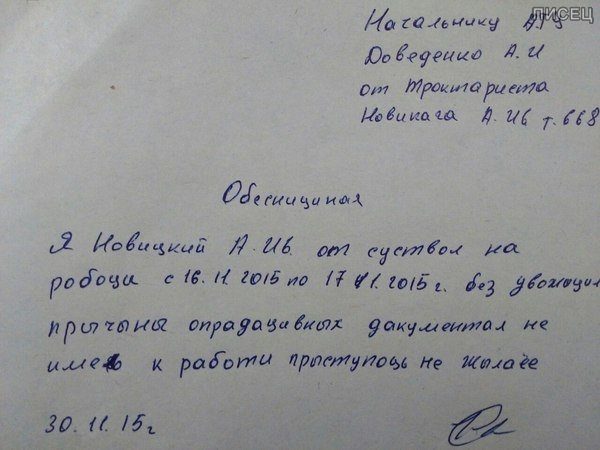 писец
Начальнику АТУ
Доведенко А.И
от трокториста
Новикага А.Ив т.668
Обеснициная
Я Новицкий А.Ив. от суствол на
робоци с 16.11.2015 по 17.11.2015г. без увожицил
причыны опрадацивных дакументал не
имею к работи прыступоць не жылаее
30.11.15г